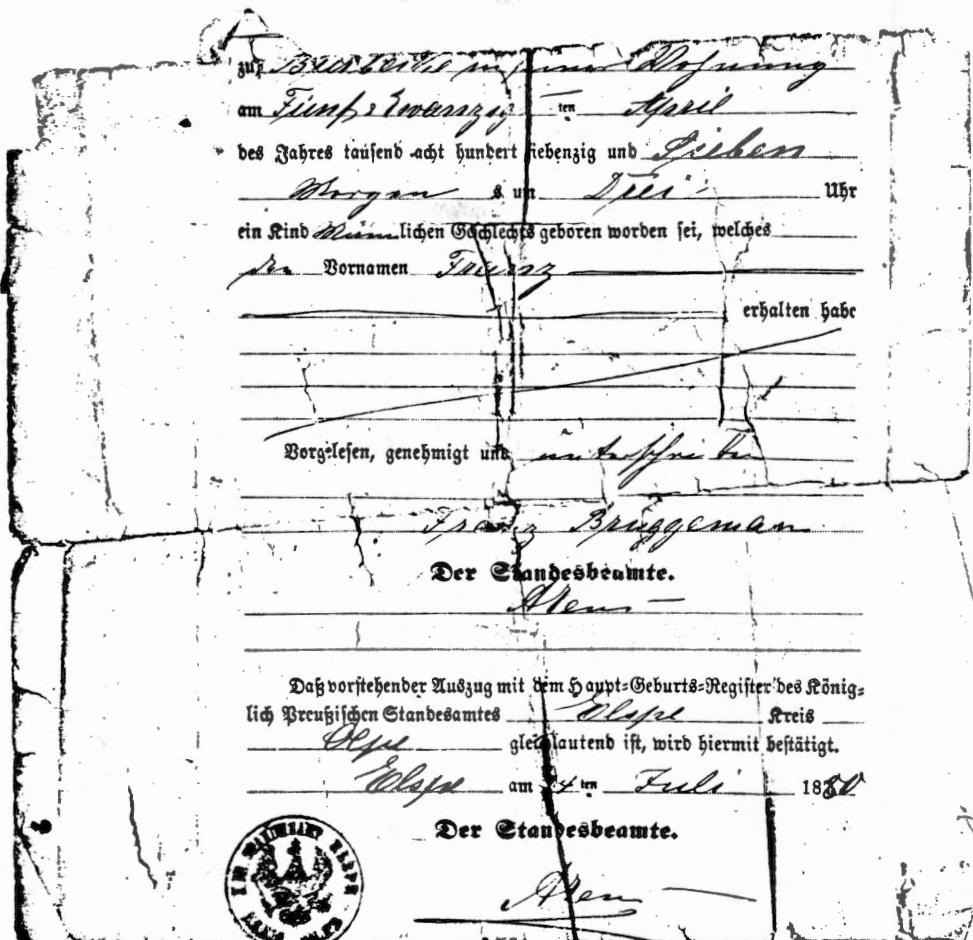 zu in seiner Wohnung
am Fünf & Zwanzig ten April
des Jahres tausend acht hundert siebenzig und Sieben
Morgen s um Drei Uhr
ein Kind Männlichen Geschlechts geboren worden sei, welches
den Vornamen Franz
erhalten habe
Vorgelesen, genehmigt und unterschrieben
Franz Bruggeman
Der Standesbeamte.
Daß vorstehender Auszug mit dem Haupt=Geburts=Register des König=
lich Preußischen Standesamtes Elspe Kreis
Olpe gleichlautend ist, wird hiermit bestätigt.
Elspe am ten Juli 1880
Der Standesbeamte.